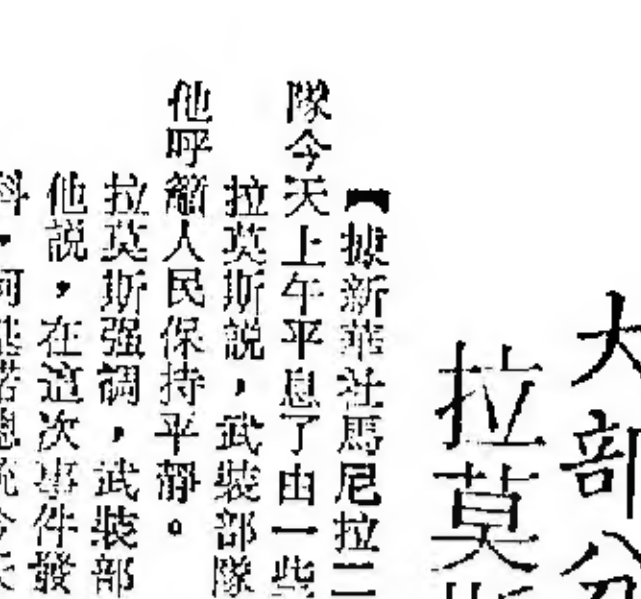 大部分
拉莫斯
【據新華社馬尼拉二
隊今天上午平息了由一些
拉莫斯説，武裝部隊
他呼籲人民保持平靜。
拉莫斯强調，武裝部
他説，在這次事件發
科，阿基諾總統今天